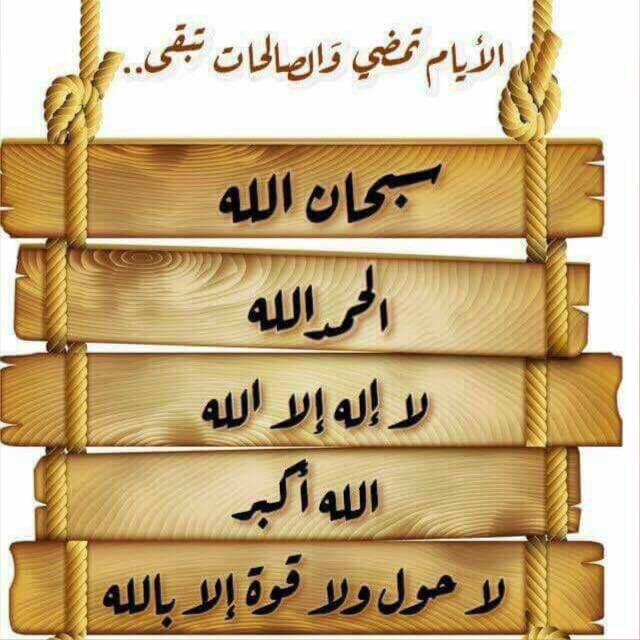 الأيام تمضي وَالصالحات تبقى..
سبحان الله
الحمد الله
لا إله إلا الله
الله أكبر
لا حول ولا قوة إلا بالله